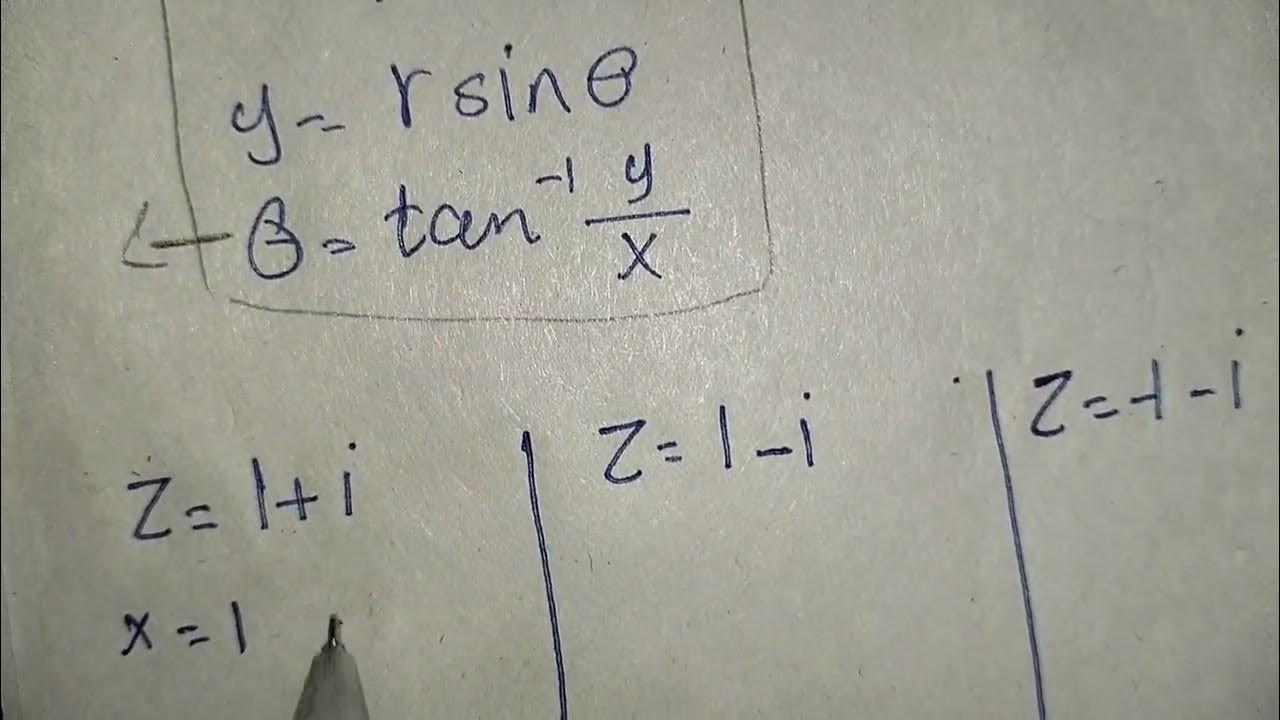 y = r sin θ
θ = tan⁻¹ y/x
z = 1 + i
x = 1
z = 1 - i
z = -1 - i